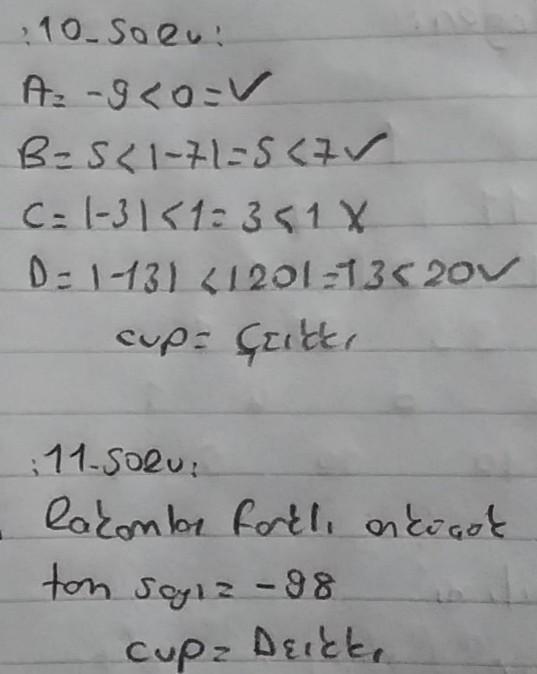 :10-Soru:
A= -9<0=✓
B= 5<|-7|=5<7✓
C= |-3|<1=3<1 X
D= |-13|<|20|=13<20✓
cvp= Çşıkkı
:11-Soru:
Rakamları farklı en küçük
tam sayı= -98
cvp= Dşıkkı